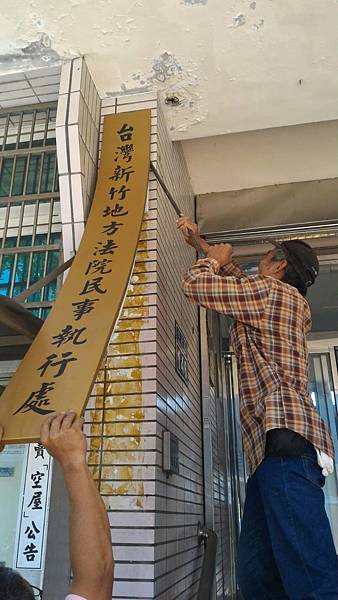 台灣新竹地方法院民事執行處
賣「空屋」公告